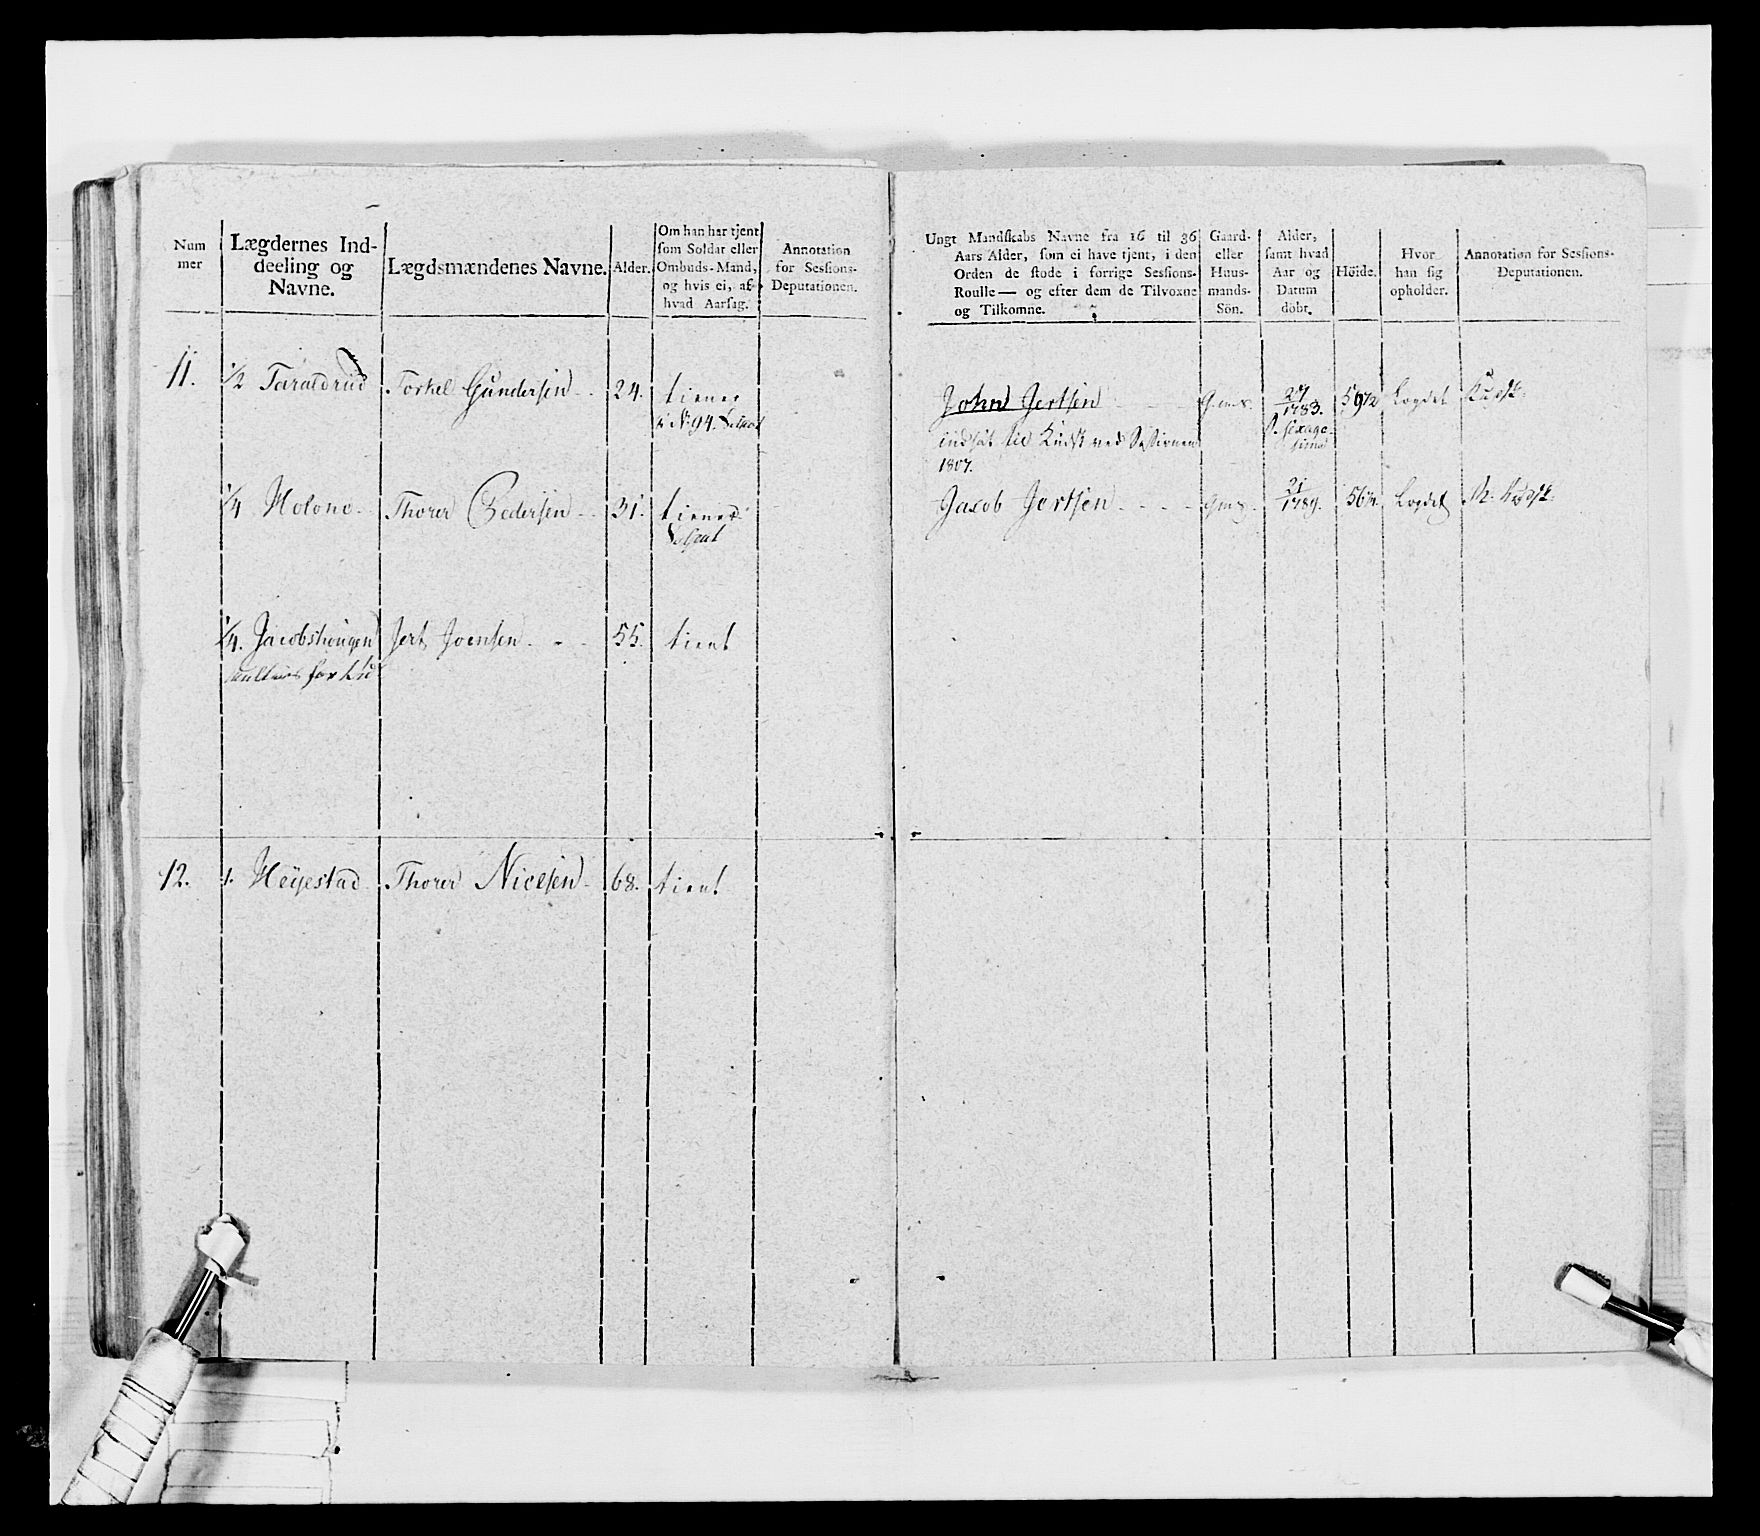 Num
mer
Lægdernes Ind-
deeling og
Navne.
Lægdsmændenes Navne.
Alder.
Om han har tjent
som Soldat eller
Ombuds-Mand,
og hvis ei, af
hvad Aarsag.
Annotation
for Sessions-
Deputationen.
Ungt Mandskabs Navne fra 16 til 36
Aars Alder, som ei have tjent, i den
Orden de stode i forrige Sessions-
Roulle — og efter dem de Tilvoxne
og Tilkomne.
Gaard-
eller
Huus-
mands-
Sön.
Alder,
samt hvad
Aar og
Datum
döbt.
Höide.
Hvor
han sig
opholder.
Annotation for Sessions-
Deputationen.
11. 1/2 Taraldrud Torkel Gundersen 24. tiener
i No 94.
John Jertsen G.m.s. 27/1783. 59 1/2 Logdet Kudsk.
S. sexage-
sima
indsat til Kudsk ved Sessionen
1807.
1/4 Holone Thorer Pedersen 31. tiener
Jacob Jertsen G.m.s. 21/1789. Logdet
1/4. Jacobshougen Jert Joensen 55. tient
12. 1. Heyestad Thorer Nielsen 68. tient